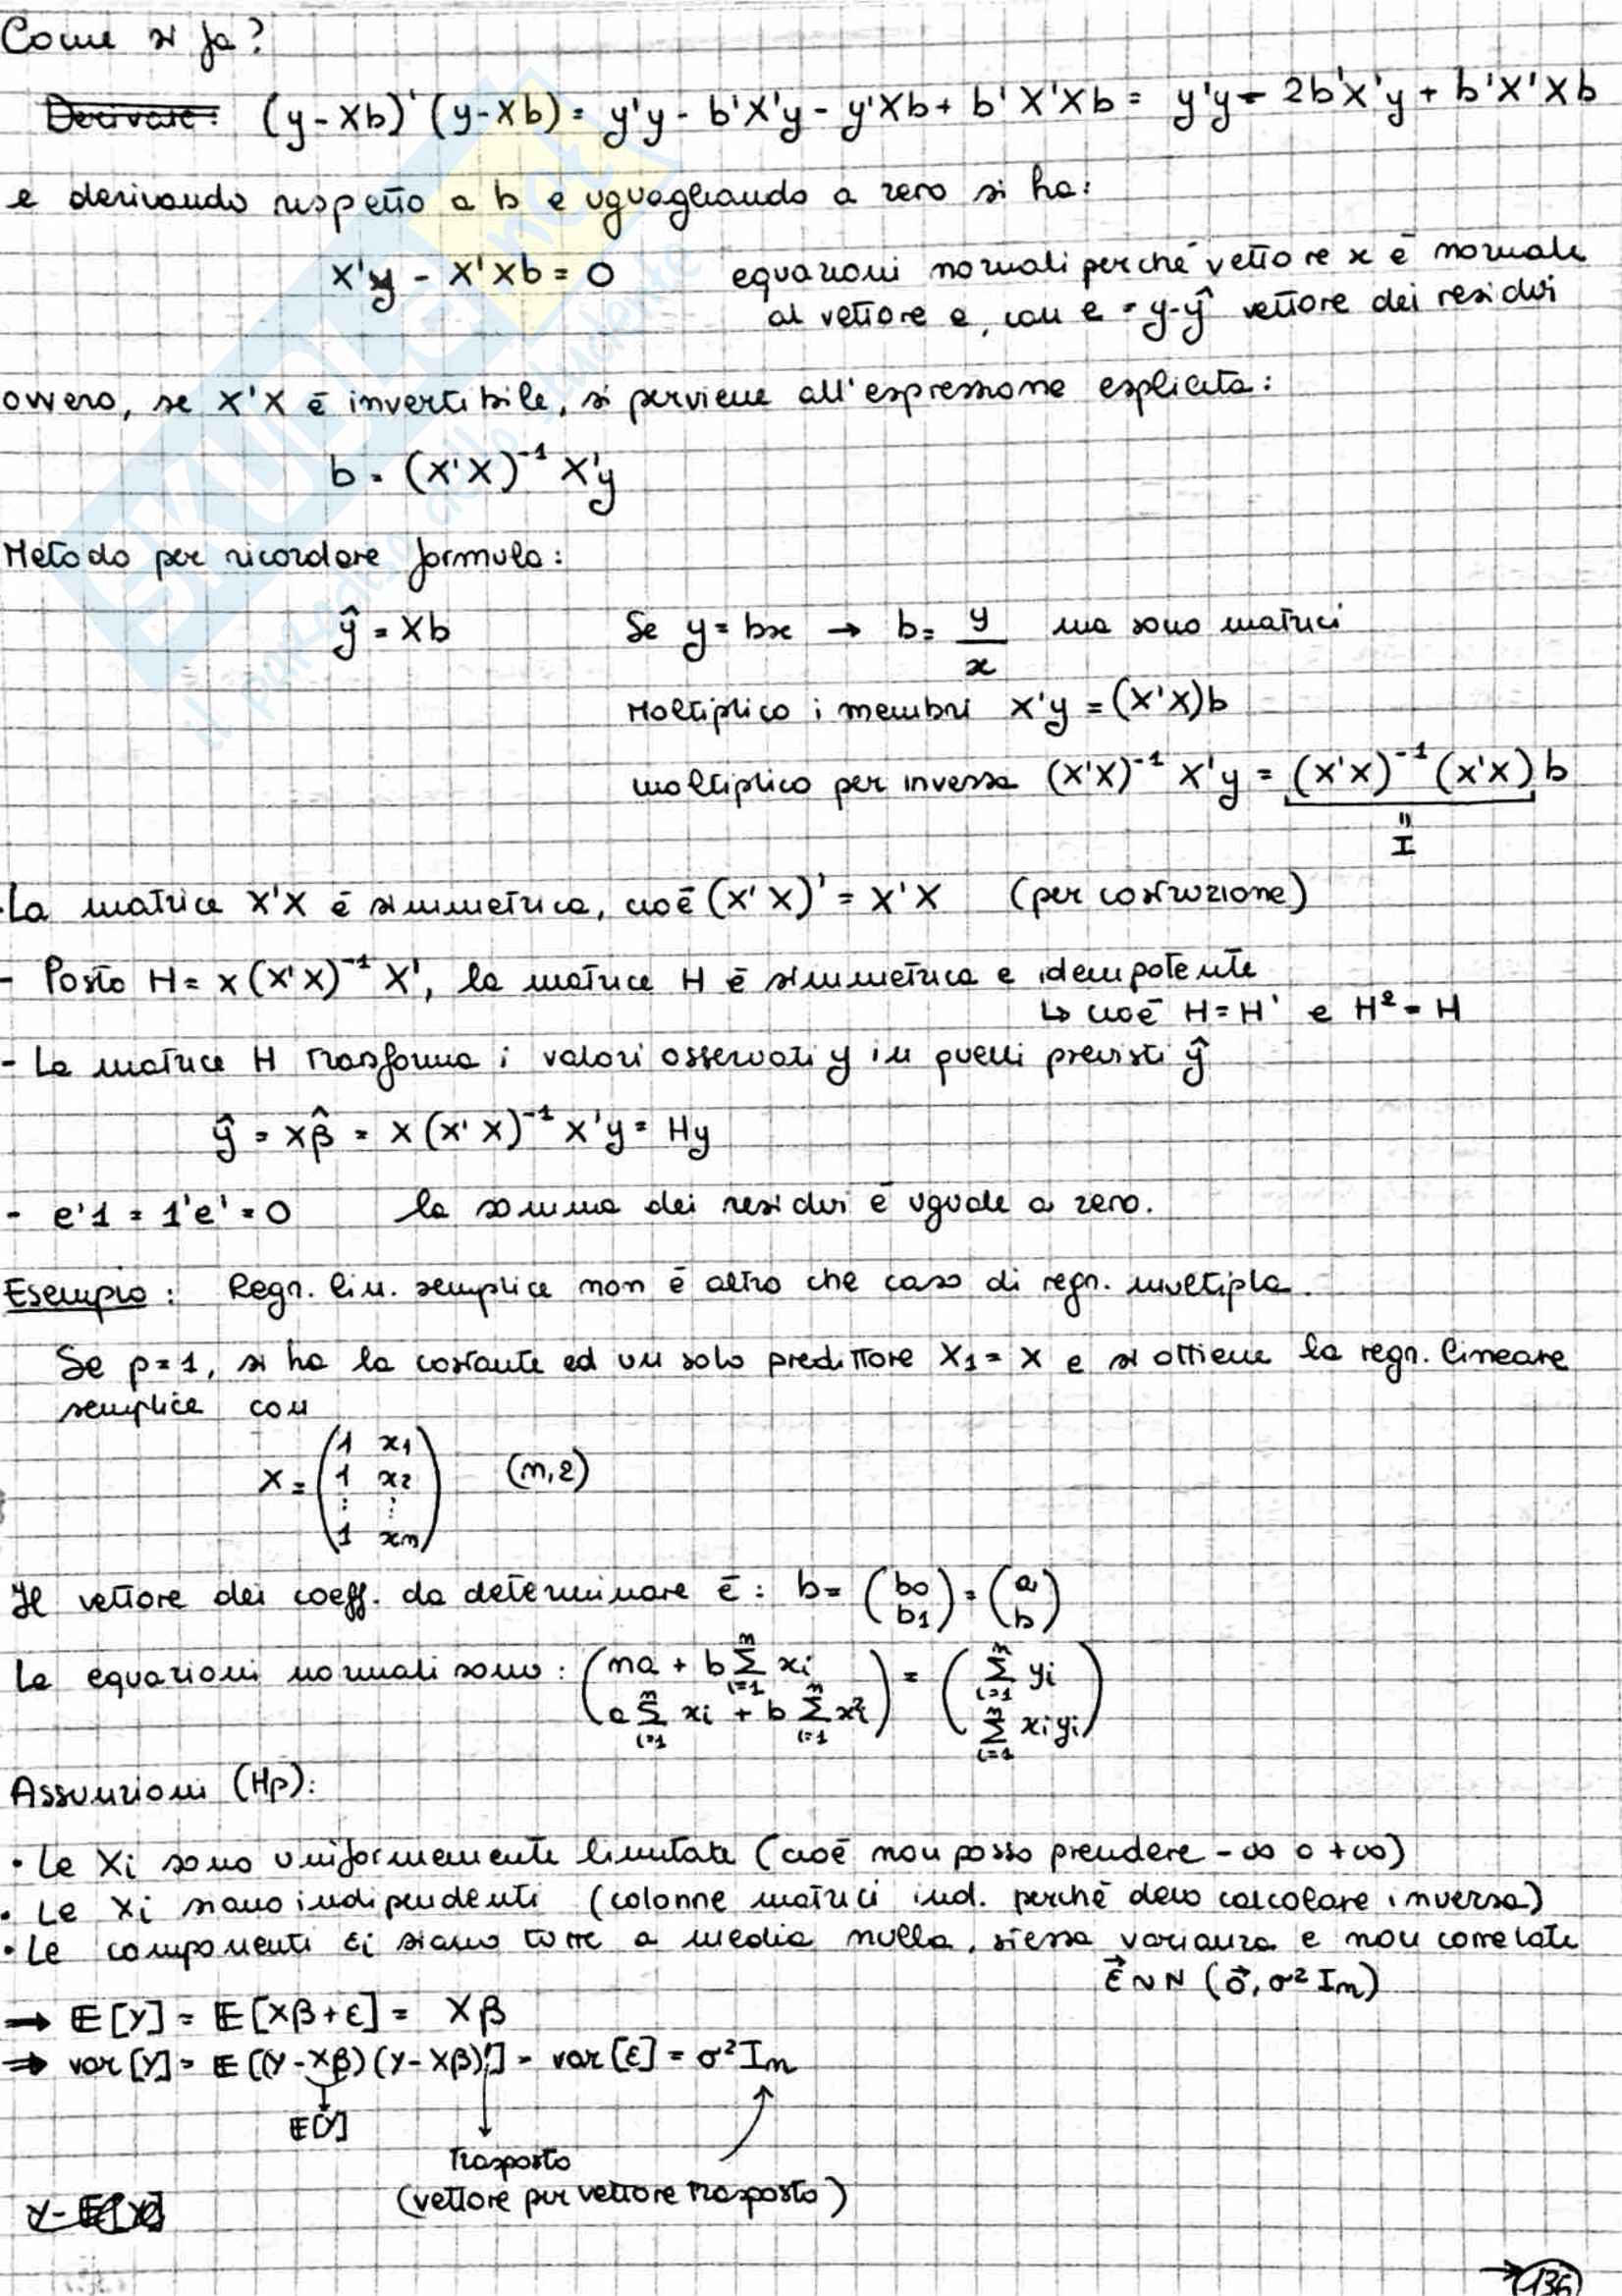 Come si fa?
Derivare: (y-Xb)' (y-Xb) = y'y - b'X'y - y'Xb + b'X'Xb = y'y - 2b'X'y + b'X'Xb
e derivando rispetto a b e uguagliando a zero si ha:
X'y - X'Xb = 0 equazioni normali perché vettore x è normale
al vettore e, con e = y-ŷ vettore dei residui
ovvero, se X'X è invertibile, si perviene all'espressione esplicita:
b = (X'X)⁻¹ X'y
Metodo per ricordare formula:
ŷ = Xb Se y = bx → b = y/x ma sono matrici
Moltiplico i membri X'y = (X'X)b
moltiplico per inversa (X'X)⁻¹ X'y = (X'X)⁻¹ (X'X) b
= I
-La matrice X'X è simmetrica, cioè (X'X)' = X'X (per costruzione)
- Posto H = X(X'X)⁻¹ X', la matrice H è simmetrica e idempotente
↳ cioè H = H' e H² = H
- La matrice H trasforma i valori osservati y in quelli previsti ŷ
ŷ = Xβ̂ = X(X'X)⁻¹ X'y = Hy
- e'1 = 1'e' = 0 la somma dei residui è uguale a zero.
Esempio: Regr. lin. semplice non è altro che caso di regr. multipla.
Se p=1, si ha la costante ed un solo predittore X₁ = X e si ottiene la regr. lineare
semplice con
X = (1 x₁
1 x₂
⋮ ⋮
1 xₙ) (n,2)
Il vettore dei coeff. da determinare è: b = (b₀ b₁) = (a b)
Le equazioni normali sono: (na + b Σⁿᵢ₌₁ xᵢ) = (Σⁿᵢ₌₁ yᵢ)
(a Σⁿᵢ₌₁ xᵢ + b Σⁿᵢ₌₁ xᵢ²) (Σⁿᵢ₌₁ xᵢyᵢ)
Assunzioni (Hp):
• Le Xi sono uniformemente limitate (cioè non posso prendere -∞ o +∞)
• Le Xi siano indipendenti (colonne matrici ind. perché devo calcolare inversa)
• Le componenti εi siano tutte a media nulla, stessa varianza e non correlate
ε⃗ ~ N (0⃗, σ² Iₙ)
→ E[Y] = E[Xβ+ε] = Xβ
⇒ var[Y] = E[(Y-Xβ)(Y-Xβ)'] = var[ε] = σ² Iₙ
E[Y]
Trasposto
(vettore per vettore trasposto)
Y-E[Y]
→ 136
SKUOLA.net
il paradiso dello studente